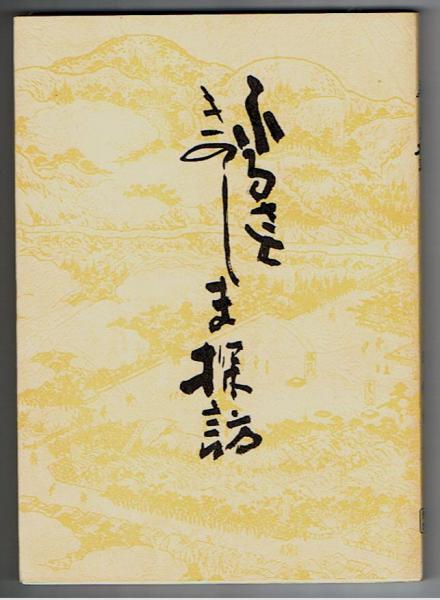 ふるさと
きのしま探訪